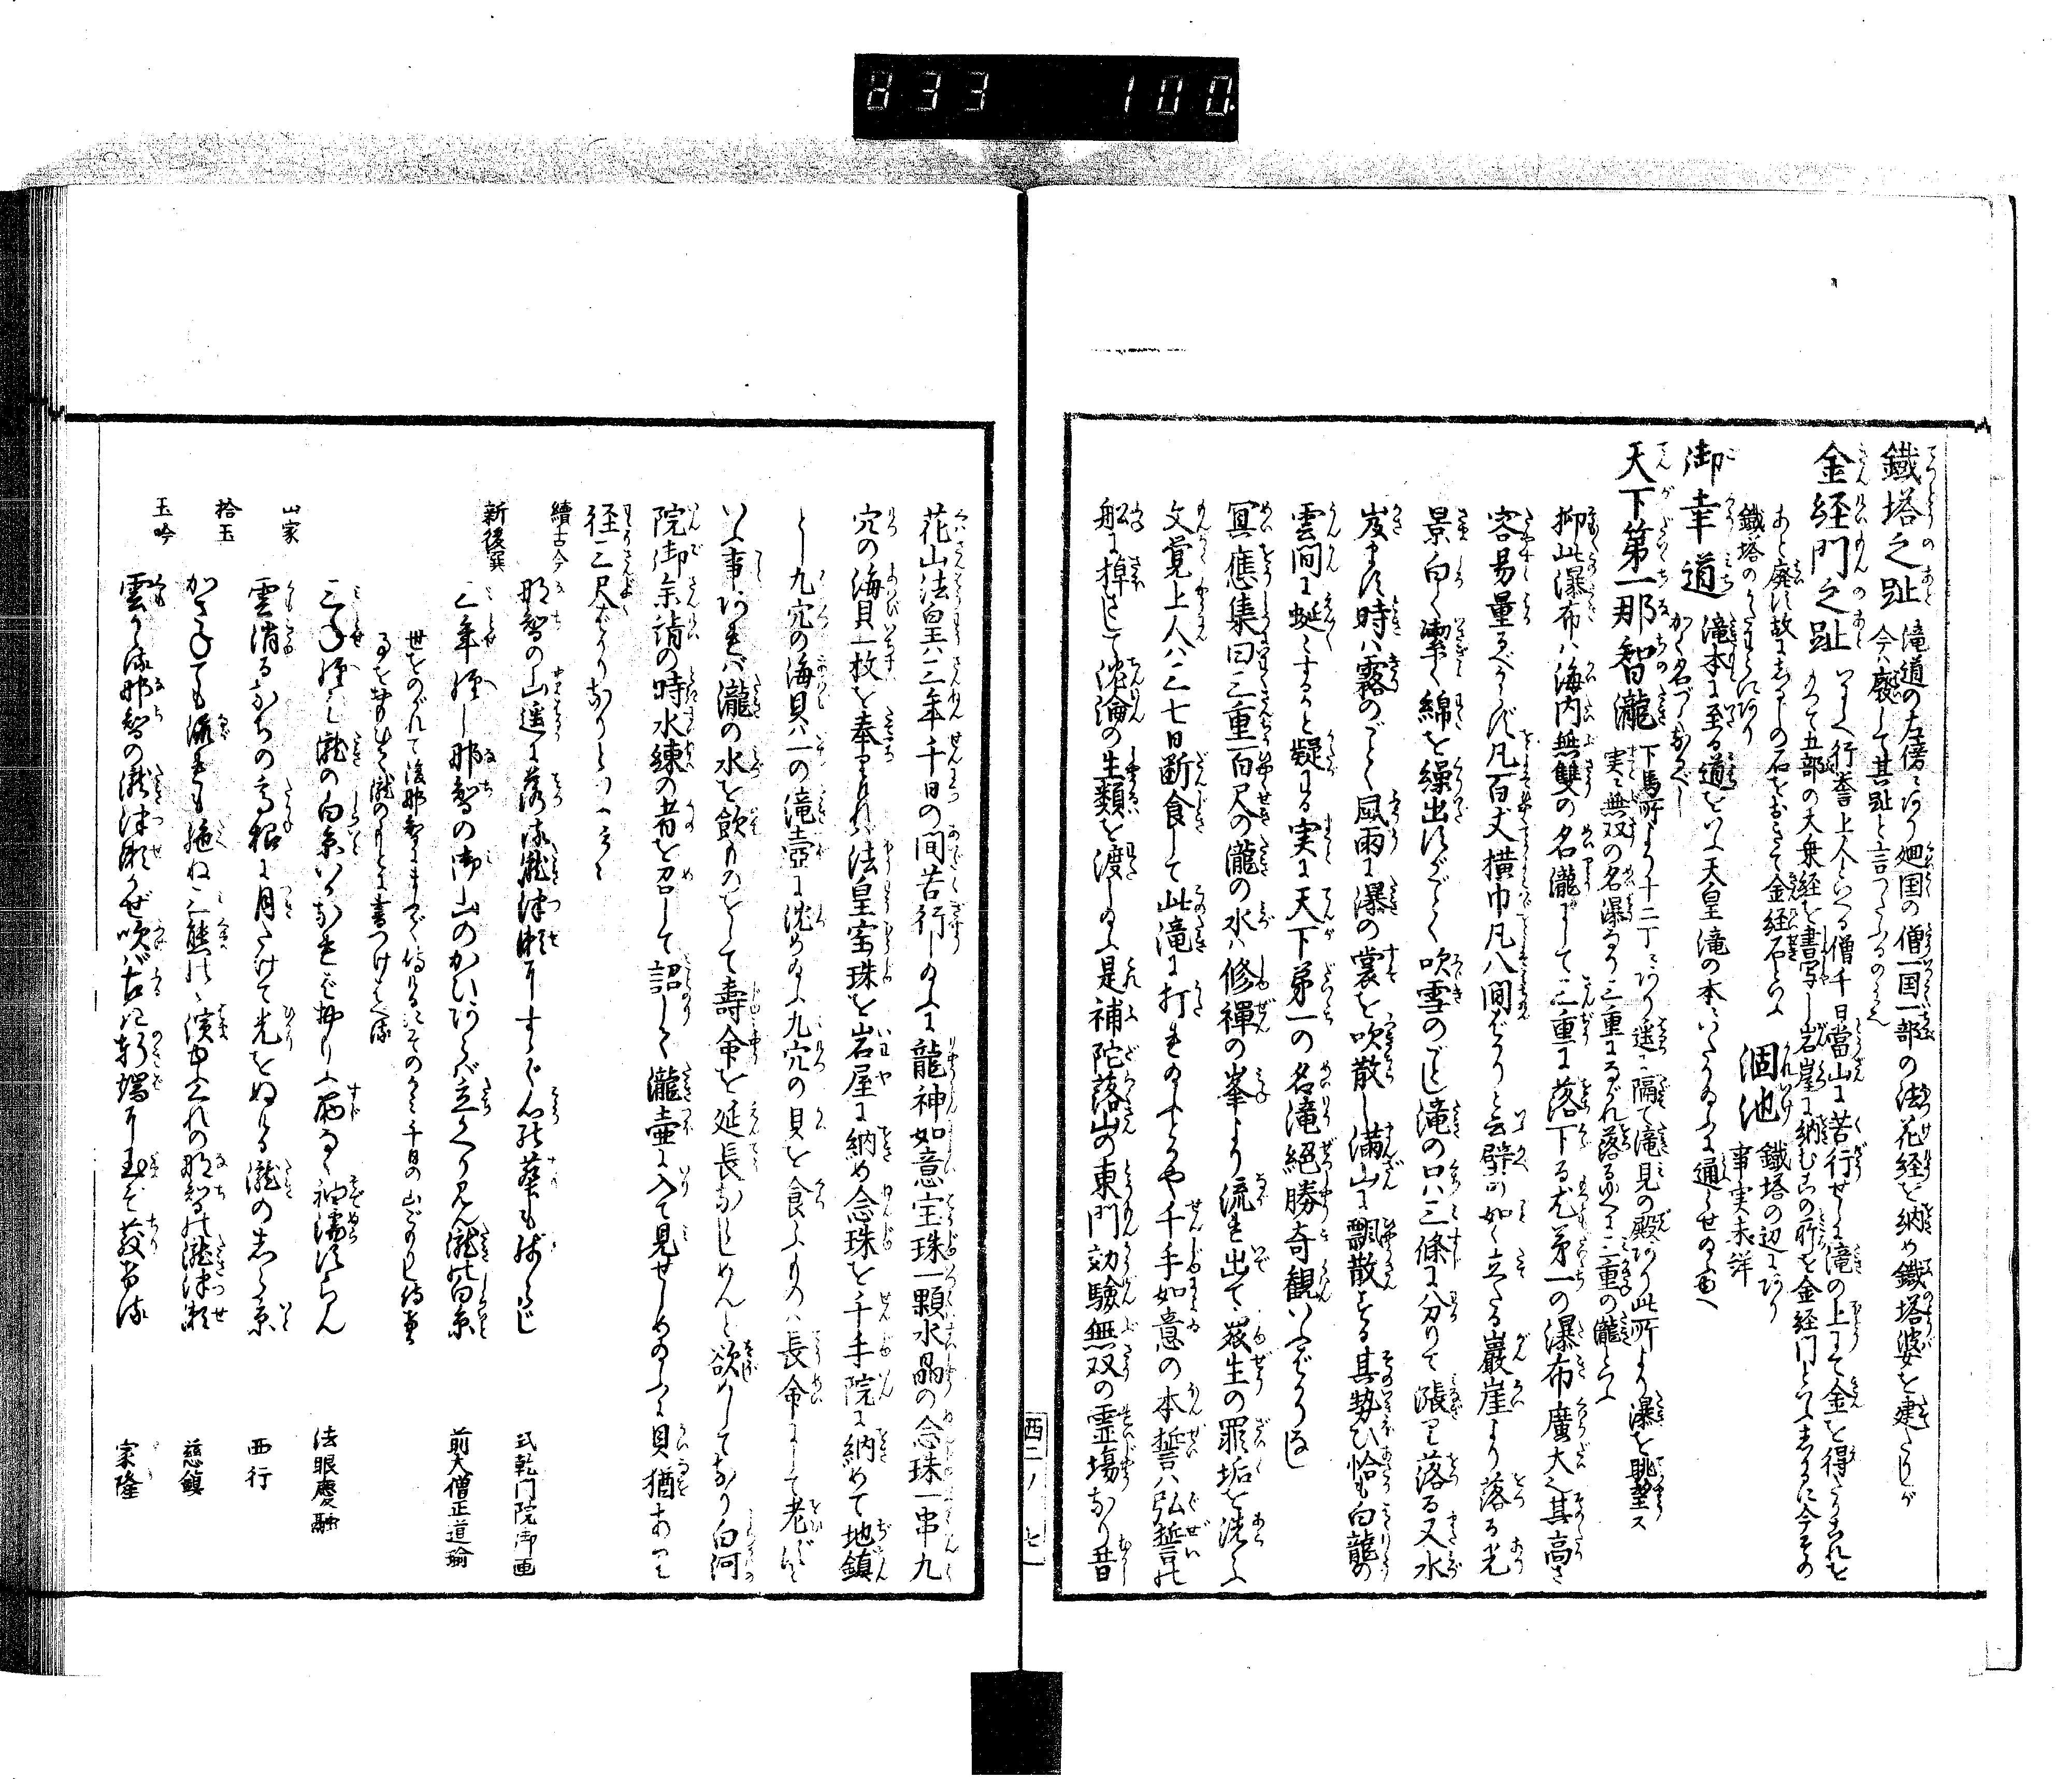 833 100.
鐵塔之趾 滝道の左傍ニあり廻国の僧一国一部の法花経を納め鐵塔婆を建たりしが
今ハ廢して其趾と言つたふるのミ
金経門之趾 いにしへ行誉上人といへる僧千日當山に苦行せしに滝の上にて金を得たりこれを
もつて五部の大乗経を書写し岩崖に納むこの所を金経門といふしかるに今その
あと廃す故にしるしの石をおきて金経石といふ
涸池 鐵塔の辺にあり
事実未詳
鐵塔のかたはらにあり
御幸道 滝本に至る道をいふ天皇滝の本にいたりたまふに通らせ給ふ
かく名づくなるべし
天下第一那智瀧 下馬所より十二丁ニあり遥に隔て滝見の殿あり此所より瀑を眺望ス
実ニ無双の名瀑なり三重にながれ落るゆへに三重の瀧といふ
抑此瀑布ハ海内無雙の名瀧にして三重に落下る尤第一の瀑布廣大也其高さ
容易量るべからず凡百丈横巾凡八間ばかりと云壁の如く立たる巖崖より落る光
景白く潔く綿を繰出すがごとく吹雪のごとし滝の口ハ三條に分りて漲り落る又水
岌ます時ハ霧のごとく風雨に瀑の裳を吹散し満山に飄散する其勢ひ恰も白龍の
雲間に蜒々するかと疑はる実に天下第一の名滝絶勝奇観いふばかりなし
冥應集曰三重百尺の瀧の水ハ修禪の峯より流れ出て衆生の罪垢を洗ふ
文覚上人ハ三七日断食して此滝に打れ給ふとかや千手如意の本誓ハ弘誓の
船に棹さして沈淪の生類を渡し給ふ是補陀落山の東門効驗無双の霊場なり昔
西二ノ七一
花山法皇ハ三年千日の間苦行し給ふに龍神如意宝珠一顆水晶の念珠一串九
穴の海貝一枚を奉りけれバ法皇宝珠を岩屋に納め念珠を千手院に納めて地鎮
とし九穴の海貝ハ一の滝壺に沈め給ふ九穴の貝を食ふものハ長命にして老いずと
いふ事あれバ瀧の水を飲ものをして壽命を延長ならしめんと欲してなり白河
院御参詣の時水練の者を召して詔して瀧壺に入て見せしめ給ふに貝猶あつて
径三尺ばかりなりといへり云々
續古今 那智の山遥に落る瀧津瀬にすゝぐ心の塵も残らじ 式乾門院御匣
新後撰 三年経し那智の御山のかひあらば立かへりみん瀧の白糸 前大僧正道瑜
世をのがれて後那智にまうで侍けるにそのかミ千日の山ごもりし侍ける
事を思ひいでゝ瀧のもとに書つけはべる
三とせ経し瀧の白糸いかなれば思ふ筋なく袖濡すらん 法眼慶融
山家 雲消るなちの高根に月たけて光をぬける瀧のしら糸 西行
拾玉 慈鎮
玉吟 雲かゝる那智の瀧津瀬かぜ吹バ古き軒端に玉ぞ散ける 家隆